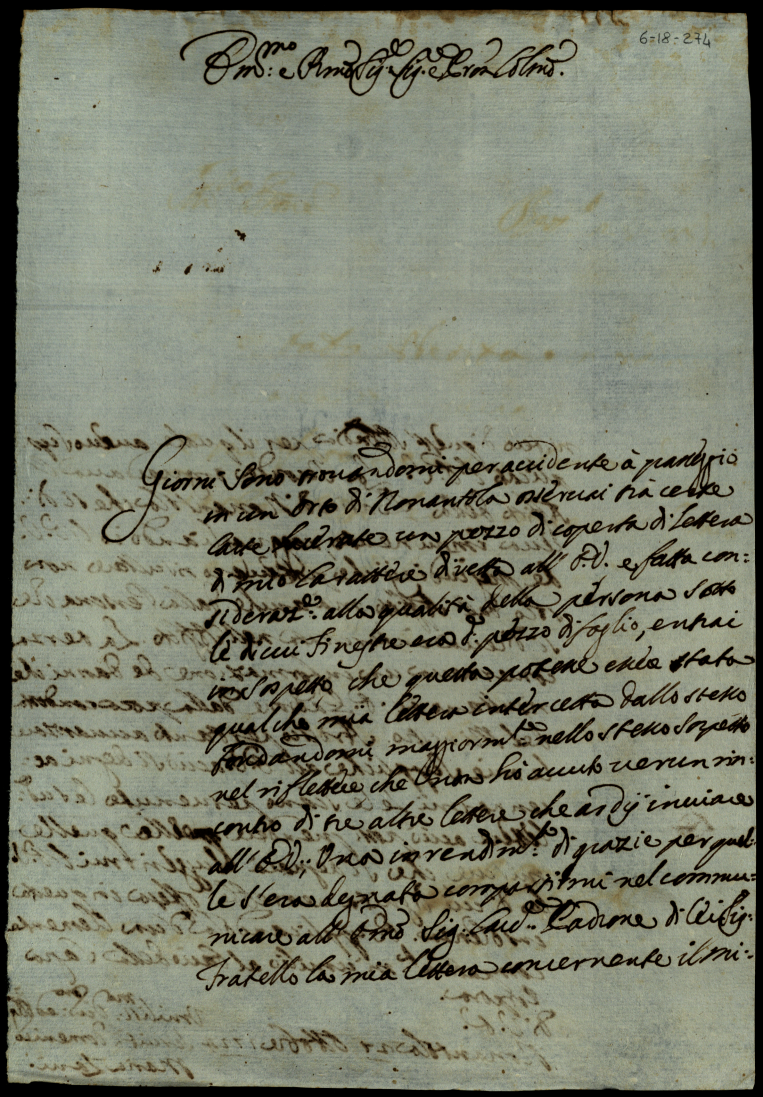 6-18-274
Em.mo e Rmo Sig.r Sig.r e Pron Colmo.
Giorni sono trovandomi per accidente à passeggio
in un' Orto di Nonantola osservai trà certe
Carte lacerate un pezzo di coperta di Lettera
di mio Carattere diretta all' E.V. e fatta con-
sideraz.e alla qualità della persona sotto
le di cui Finestre era d.o pezzo di foglio, entrai
in sospetto che questa potesse essere stata
qualche mia lettera intercetta dallo stesso
fondandomi maggiorm.te nello stesso sospetto
nel riflettere che non hò avuto verun ris-
contro di tre altre lettere che ardij inviare
all' E.V.; Una in rendim.to di grazie per quel-
le s'era degnata compartirmi nel commu-
nicare all' Emo Sig. Card. Padrone di Lei Sig.
Fratello la mia lettera concernente il mi-